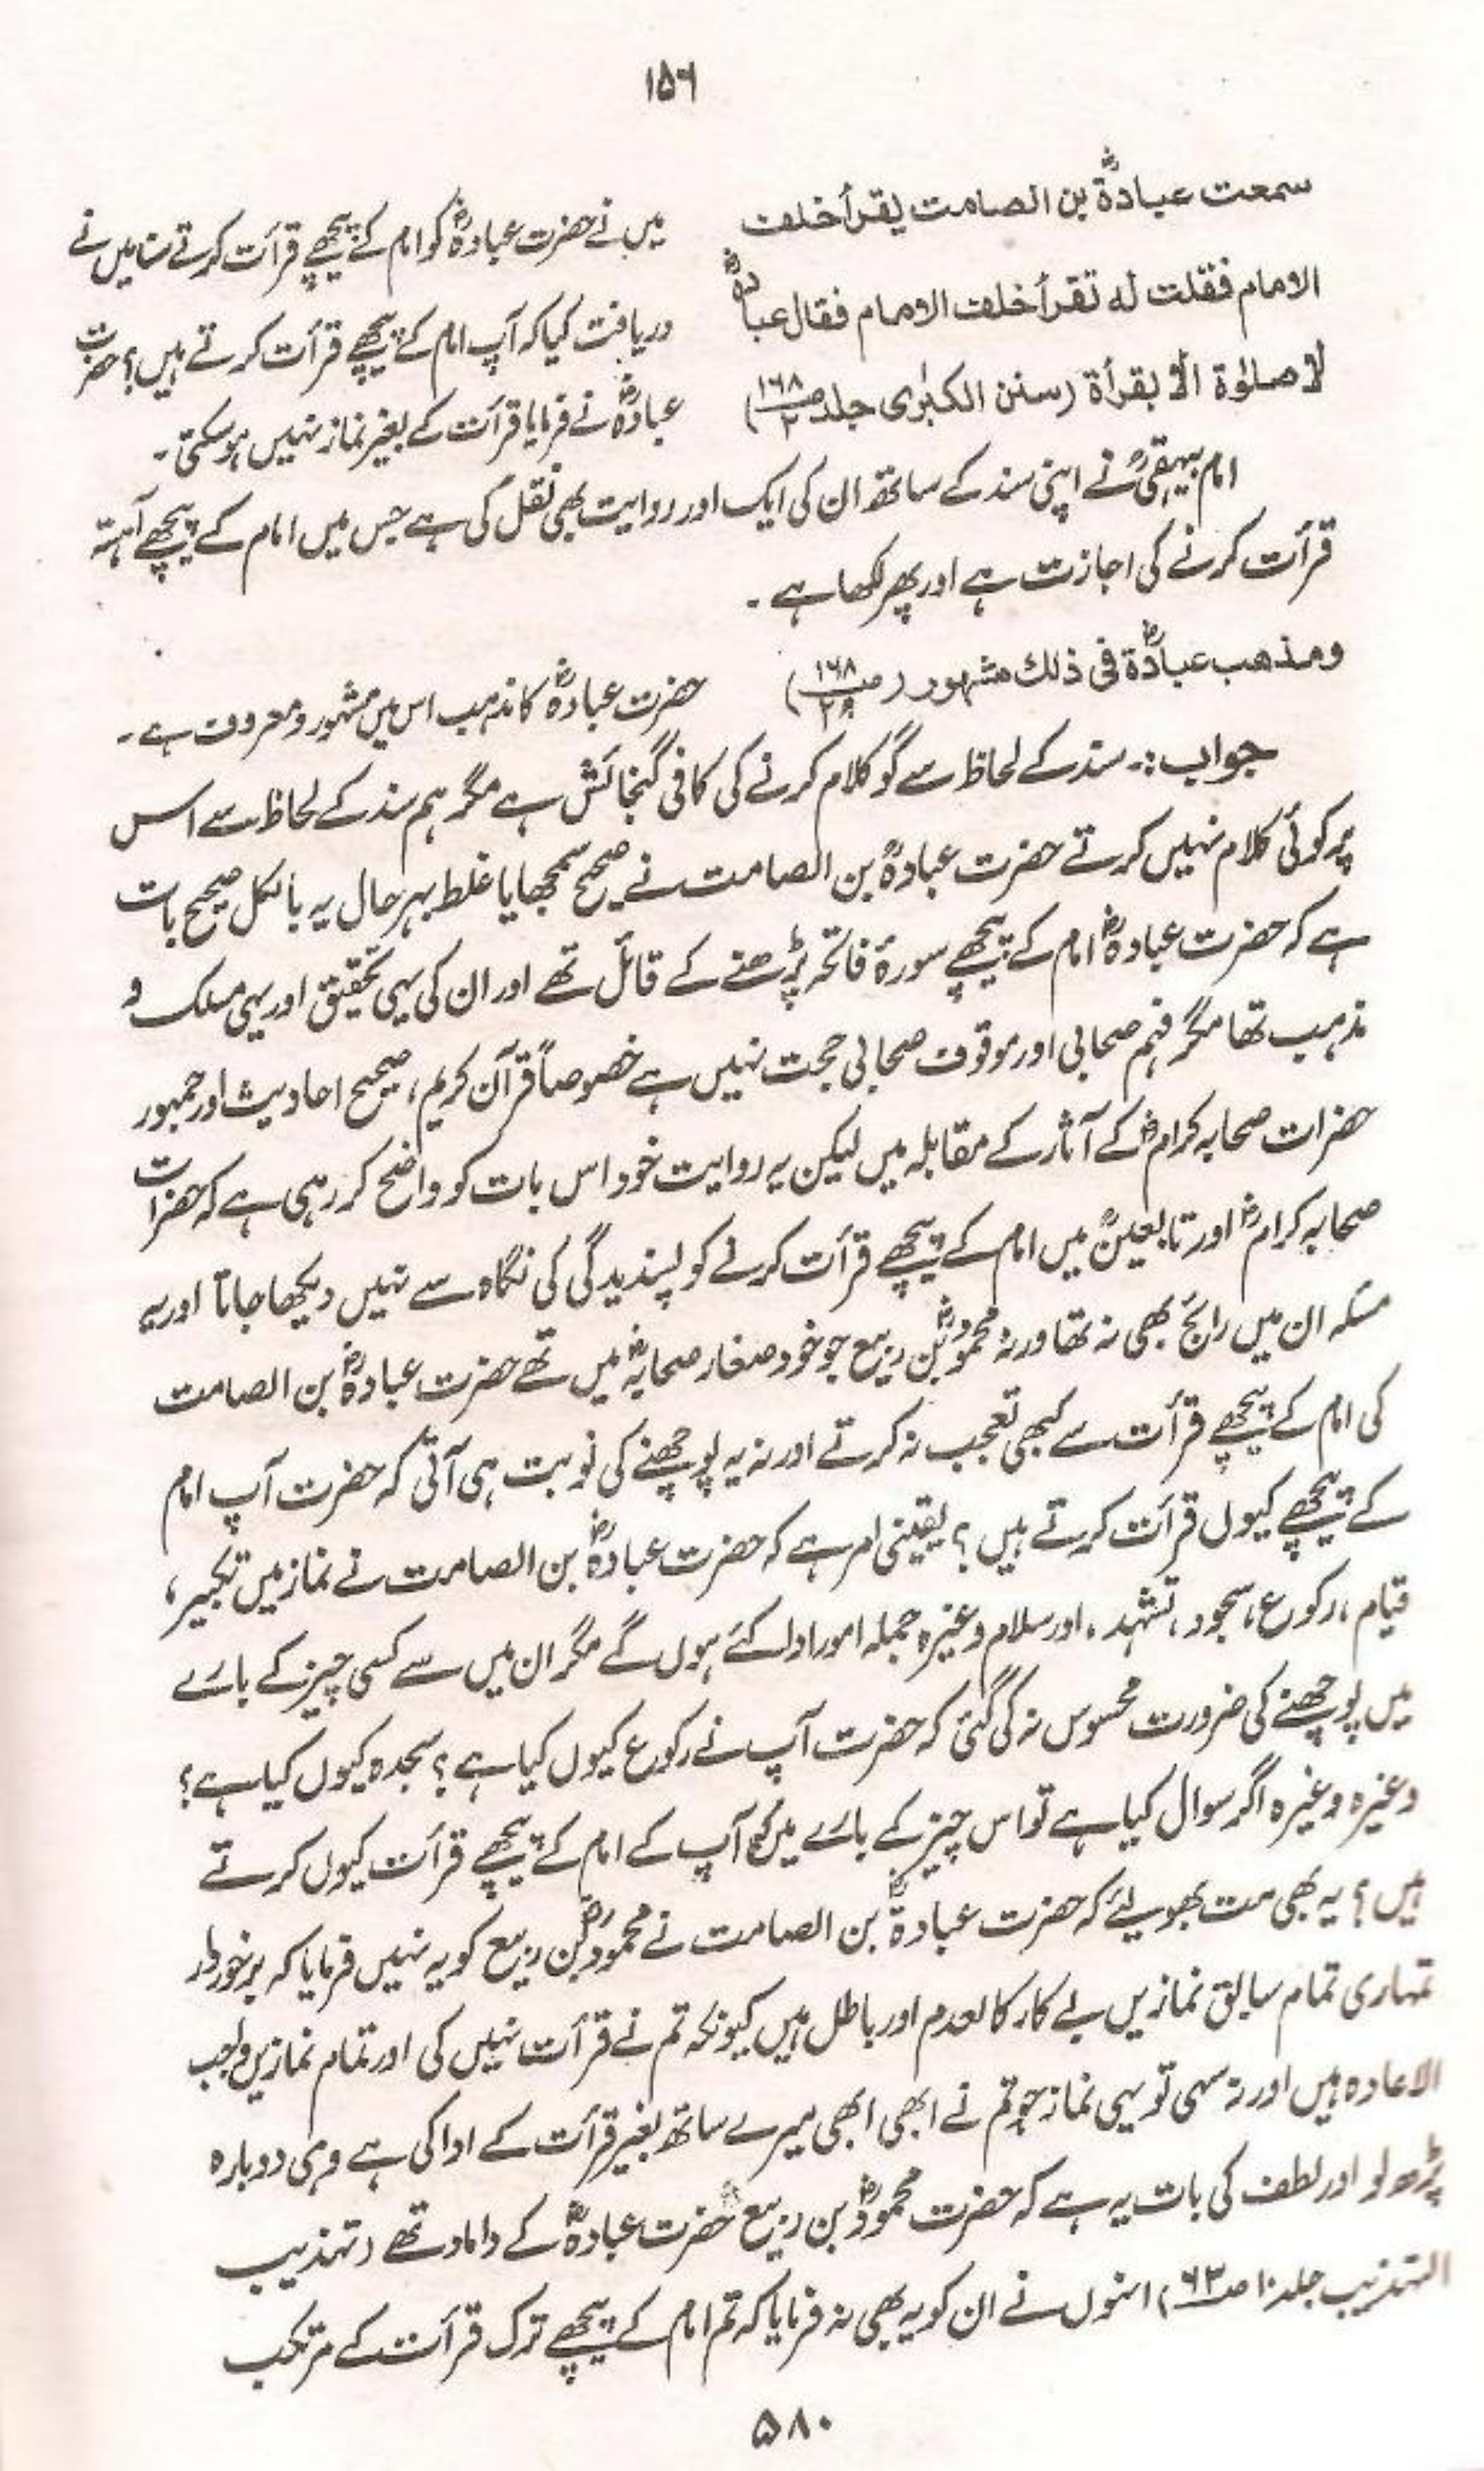 ۱۵۶
سمعت عبادةؓ بن الصامت يقرأ خلف
الامام فقلت له تقرأ خلف الامام فقال عبادةؓ
لا صلوٰة الا بقرأة (سنن الكبرٰى جلد ۲ صـ ۱۶۸)
میں نے حضرت عبادہؓ کو امام کے پیچھے قرأت کرتے سنا میں نے
دریافت کیا کہ آپ امام کے پیچھے قرأت کرتے ہیں؟ حضرت
عبادہؓ نے فرمایا قرأت کے بغیر نماز نہیں ہو سکتی۔
امام بیہقیؒ نے اپنی سند کے ساتھ ان کی ایک اور روایت بھی نقل کی ہے جس میں امام کے پیچھے آہستہ
قرأت کرنے کی اجازت ہے اور پھر لکھا ہے۔
ومذهب عبادةؓ فى ذلك مشهور (صـ ۱۶۸
حضرت عبادہؓ کا مذہب اس میں مشہور و معروف ہے۔
جواب:۔ سند کے لحاظ سے گو کلام کرنے کی کافی گنجائش ہے مگر ہم سند کے لحاظ سے اس
پر کوئی کلام نہیں کرتے حضرت عبادہؓ بن الصامت نے صحیح سمجھا یا غلط بہرحال یہ بالکل صحیح بات
ہے کہ حضرت عبادہؓ امام کے پیچھے سورۂ فاتحہ پڑھنے کے قائل تھے اور ان کی یہی تحقیق اور یہی مسلک و
مذہب تھا مگر فہم صحابی اور موقوف صحابی حجت نہیں ہے خصوصاً قرآن کریم، صحیح احادیث اور جمہور
حضرات صحابہ کرامؓ کے آثار کے مقابلہ میں لیکن یہ روایت خود اس بات کو واضح کر رہی ہے کہ حضرات
صحابہ کرامؓ اور تابعینؒ میں امام کے پیچھے قرأت کرنے کو پسندیدگی کی نگاہ سے نہیں دیکھا جاتا اور یہ
مسئلہ ان میں رائج بھی نہ تھا ورنہ محمودؓ بن ربیع جو خود صغار صحابہؓ میں تھے حضرت عبادہؓ بن الصامت
کی امام کے پیچھے قرأت سے کبھی تعجب نہ کرتے اور نہ یہ پوچھنے کی نوبت ہی آتی کہ حضرت آپ امام
کے پیچھے کیوں قرأت کرتے ہیں؟ یقینی امر ہے کہ حضرت عبادہؓ بن الصامت نے نماز میں تکبیر،
قیام، رکوع، سجود، تشہد، اور سلام وغیرہ جملہ امور ادا کئے ہوں گے مگر ان میں سے کسی چیز کے بارے
میں پوچھنے کی ضرورت محسوس نہ کی گئی کہ حضرت آپ نے رکوع کیوں کیا ہے؟ سجدہ کیوں کیا ہے؟
وغیرہ وغیرہ اگر سوال کیا ہے تو اس چیز کے بارے میں کہ آپ کے امام کے پیچھے قرأت کیوں کرتے
ہیں؟ یہ بھی مت بھولئے کہ حضرت عبادةؓ بن الصامت نے محمودؓ بن ربیع کو یہ نہیں فرمایا کہ برخوردار
تمہاری تمام سابق نمازیں بے کار کالعدم اور باطل ہیں کیونکہ تم نے قرأت نہیں کی اور تمام نمازیں واجب
الاعادہ ہیں اور نہ سہی تو یہی نماز جو تم نے ابھی ابھی میرے ساتھ بغیر قرأت کے ادا کی ہے وہی دوبارہ
پڑھ لو اور لطف کی بات یہ ہے کہ حضرت محمودؓ بن ربیع حضرت عبادہؓ کے داماد تھے (تہذیب
التہذیب جلد ۱۰ صـ ۶۳) انہوں نے ان کو یہ بھی نہ فرمایا کہ تم امام کے پیچھے ترک قرأت کے مرتکب
۵۸۰